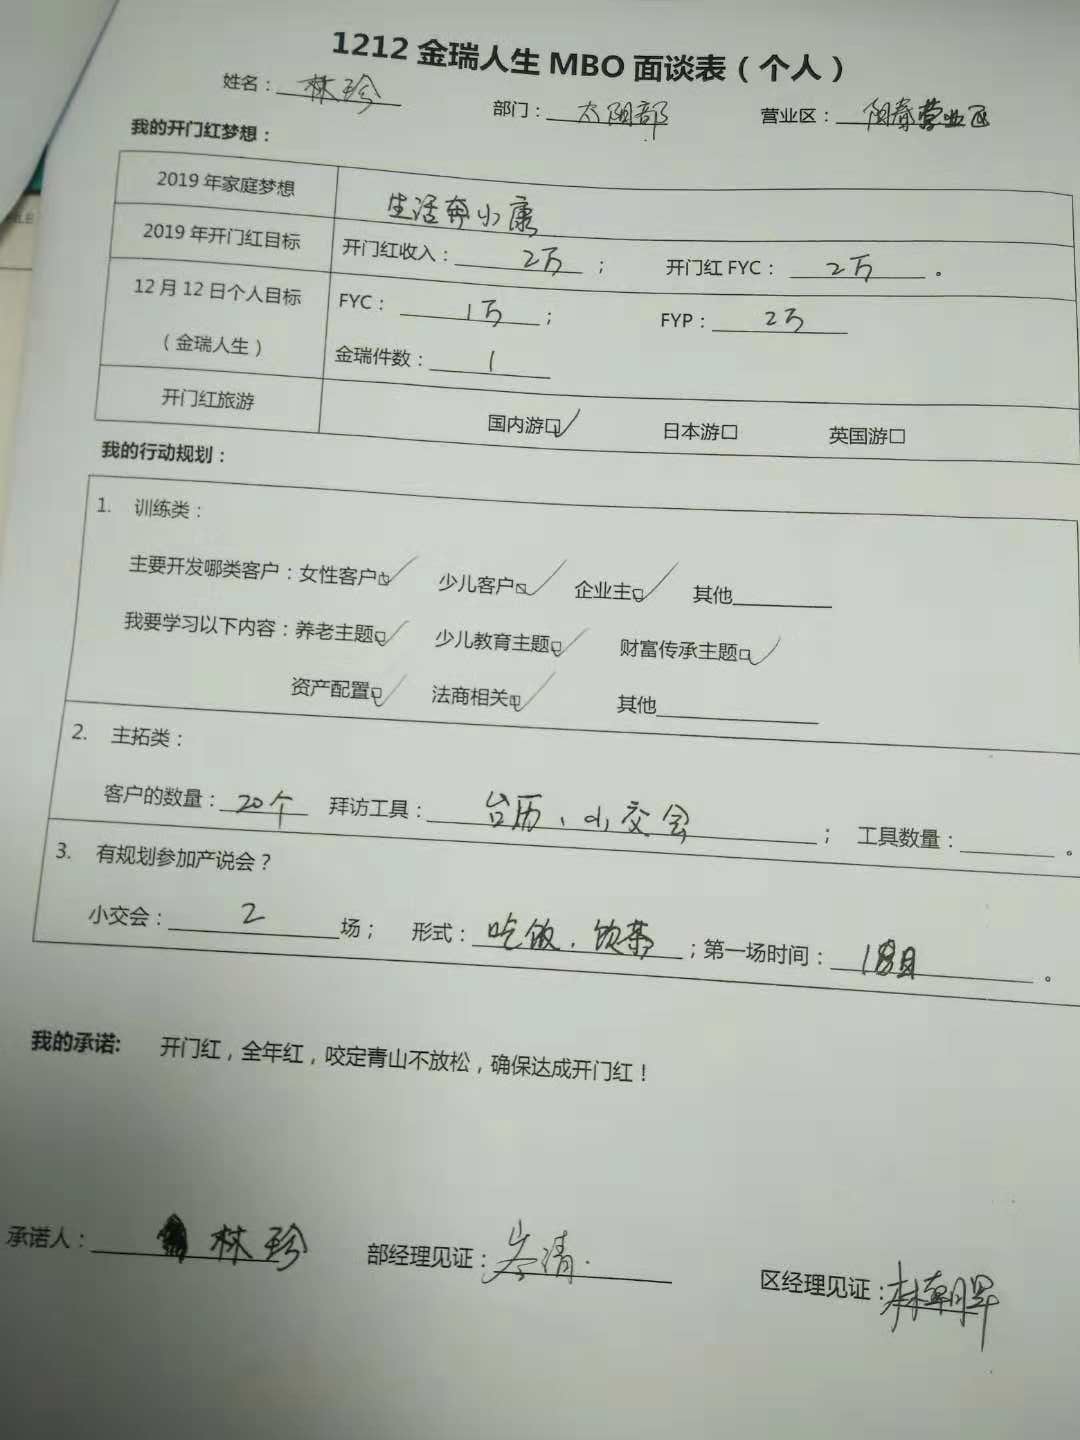 1212金瑞人生MBO面谈表（个人）
姓名：林珍 部门：太阳部 营业区：阳春营业区
我的开门红梦想：
2019年家庭梦想 生活奔小康
2019年开门红目标 开门红收入：2万； 开门红FYC：2万。
12月12日个人目标 FYC：1万； FYP：2万
（金瑞人生） 金瑞件数：1
开门红旅游 国内游☑ 日本游□ 英国游□
我的行动规划：
1. 训练类：
主要开发哪类客户：女性客户☑ 少儿客户☑ 企业主☑ 其他
我要学习以下内容：养老主题☑ 少儿教育主题☑ 财富传承主题☑
资产配置☑ 法商相关☑ 其他
2. 主拓类：
客户的数量：20个 拜访工具：台历、小交会； 工具数量：。
3. 有规划参加产说会？
小交会：2场； 形式：吃饭．饮茶；第一场时间：18日。
我的承诺: 开门红，全年红，咬定青山不放松，确保达成开门红！
承诺人：林珍 部经理见证：岑清 区经理见证：